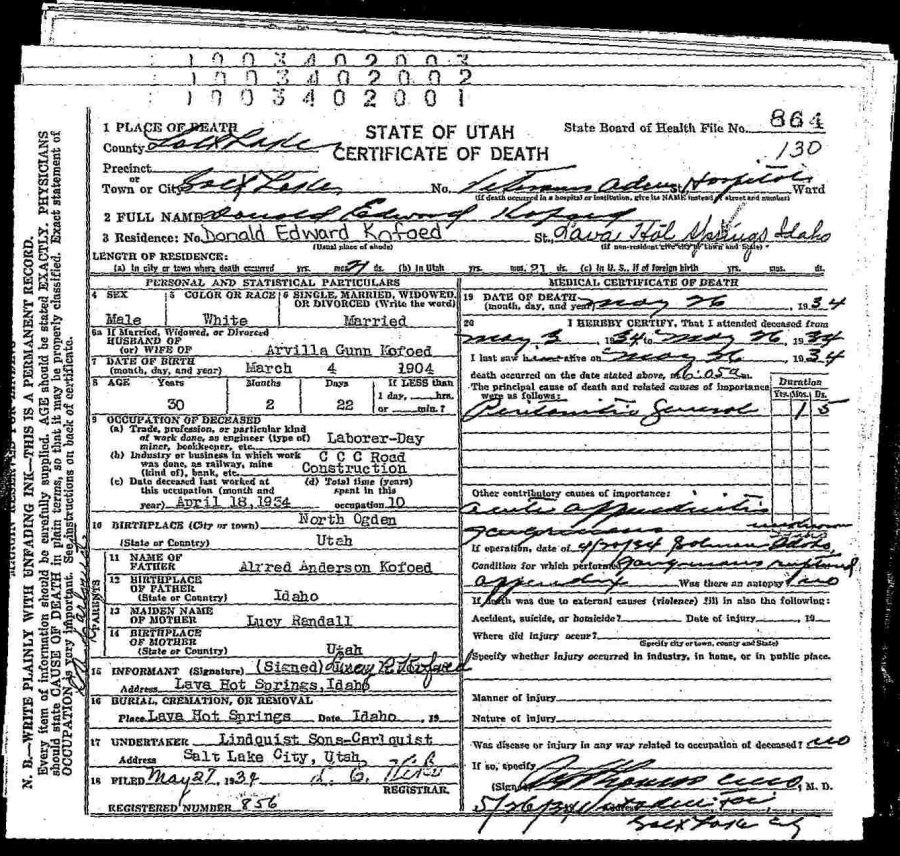 1 0 0 3 4 0 2 0 0 3
1 0 0 3 4 0 2 0 0 2
1 0 0 3 4 0 2 0 0 1
N. B.—WRITE PLAINLY WITH UNFADING INK—THIS IS A PERMANENT RECORD.
Every item of information should be carefully supplied. AGE should be stated EXACTLY. PHYSICIANS
should state CAUSE OF DEATH in plain terms, so that it may be properly classified. Exact statement of
OCCUPATION is very important. See instructions on back of certificate.
STATE OF UTAH
CERTIFICATE OF DEATH
State Board of Health File No. 864
130
1 PLACE OF DEATH
County Salt Lake
Precinct
or
Town or City Salt Lake No. Veterans Adm. St. Hospital Ward
(If death occurred in a hospital or institution, give its NAME instead of street and number)
2 FULL NAME Donald Edward Kofoed
3 Residence: No. Donald Edward Kofoed St., Lava Hot Springs Idaho
(Usual place of abode) (If non-resident give city or town and State)
LENGTH OF RESIDENCE:
(a) In city or town where death occurred yrs. mos. 21 ds. (b) In Utah yrs. mos. 21 ds. (c) In U. S., if of foreign birth yrs. mos. ds.
PERSONAL AND STATISTICAL PARTICULARS
4 SEX Male
5 COLOR OR RACE White
6 SINGLE, MARRIED, WIDOWED, OR DIVORCED (Write the word) Married
6a If Married, Widowed, or Divorced
HUSBAND OF
(or) WIFE OF Arvilla Gunn Kofoed
7 DATE OF BIRTH
(month, day, and year) March 4 1904
8 AGE Years Months Days If LESS than
30 2 22 1 day, hrs.
or min.?
9 OCCUPATION OF DECEASED
(a) Trade, profession, or particular kind
of work done, as engineer (type of)
miner, bookkeeper, etc. Laborer-Day
(b) Industry or business in which work
was done, as railway, mine
(kind of), bank, etc. C C C Road Construction
(c) Date deceased last worked at
this occupation (month and
year) April 18, 1934
(d) Total time (years)
spent in this
occupation 10
10 BIRTHPLACE (City or town) North Ogden
(State or Country) Utah
PARENTS
11 NAME OF
FATHER Alfred Anderson Kofoed
12 BIRTHPLACE
OF FATHER
(State or Country) Idaho
13 MAIDEN NAME
OF MOTHER Lucy Randall
14 BIRTHPLACE
OF MOTHER
(State or Country) Utah
15 INFORMANT (Signature) (Signed) Lucy R Kofoed
Address Lava Hot Springs, Idaho
16 BURIAL, CREMATION, OR REMOVAL
Place Lava Hot Springs Date Idaho , 19
17 UNDERTAKER Lindquist Sons-Carlquist
Address Salt Lake City, Utah
18 FILED May 27, 1934
REGISTRAR.
REGISTERED NUMBER 856
MEDICAL CERTIFICATE OF DEATH
19 DATE OF DEATH
(month, day, and year) May 26, 1934
20 I HEREBY CERTIFY, That I attended deceased from
May 3, 1934 to May 26, 1934
I last saw him alive on May 26, 1934
death occurred on the date stated above, at 6:05 a m.
The principal cause of death and related causes of importance
were as follows:
Duration
Yrs. Mos. Ds.
Peritonitis General 1 5
Other contributory causes of importance:
Acute appendicitis
gangrenous unknown
If operation, date of 4/20/34 Idaho
Condition for which performed Gangrenous ruptured
appendix Was there an autopsy? no
If death was due to external causes (violence) fill in also the following:
Accident, suicide, or homicide? Date of injury , 19
Where did injury occur?
(Specify city or town, county and State)
Specify whether injury occurred in industry, in home, or in public place.
Manner of injury
Nature of injury
Was disease or injury in any way related to occupation of deceased? no
If so, specify
(Signed) Thomas , M. D.
5/26/34 Address
Salt Lake City